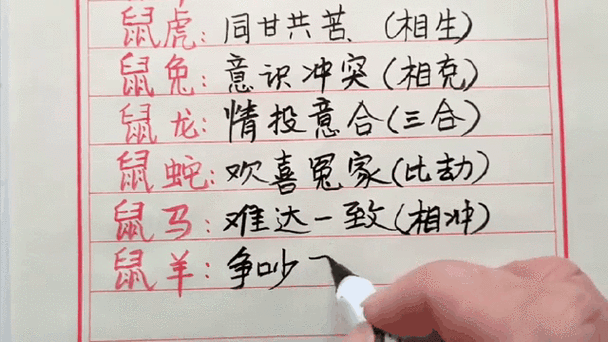 鼠虎：同甘共苦（相生）
鼠兔：意识冲突（相克）
鼠龙：情投意合（三合）
鼠蛇：欢喜冤家（比劫）
鼠马：难达一致（相冲）
鼠羊：争吵